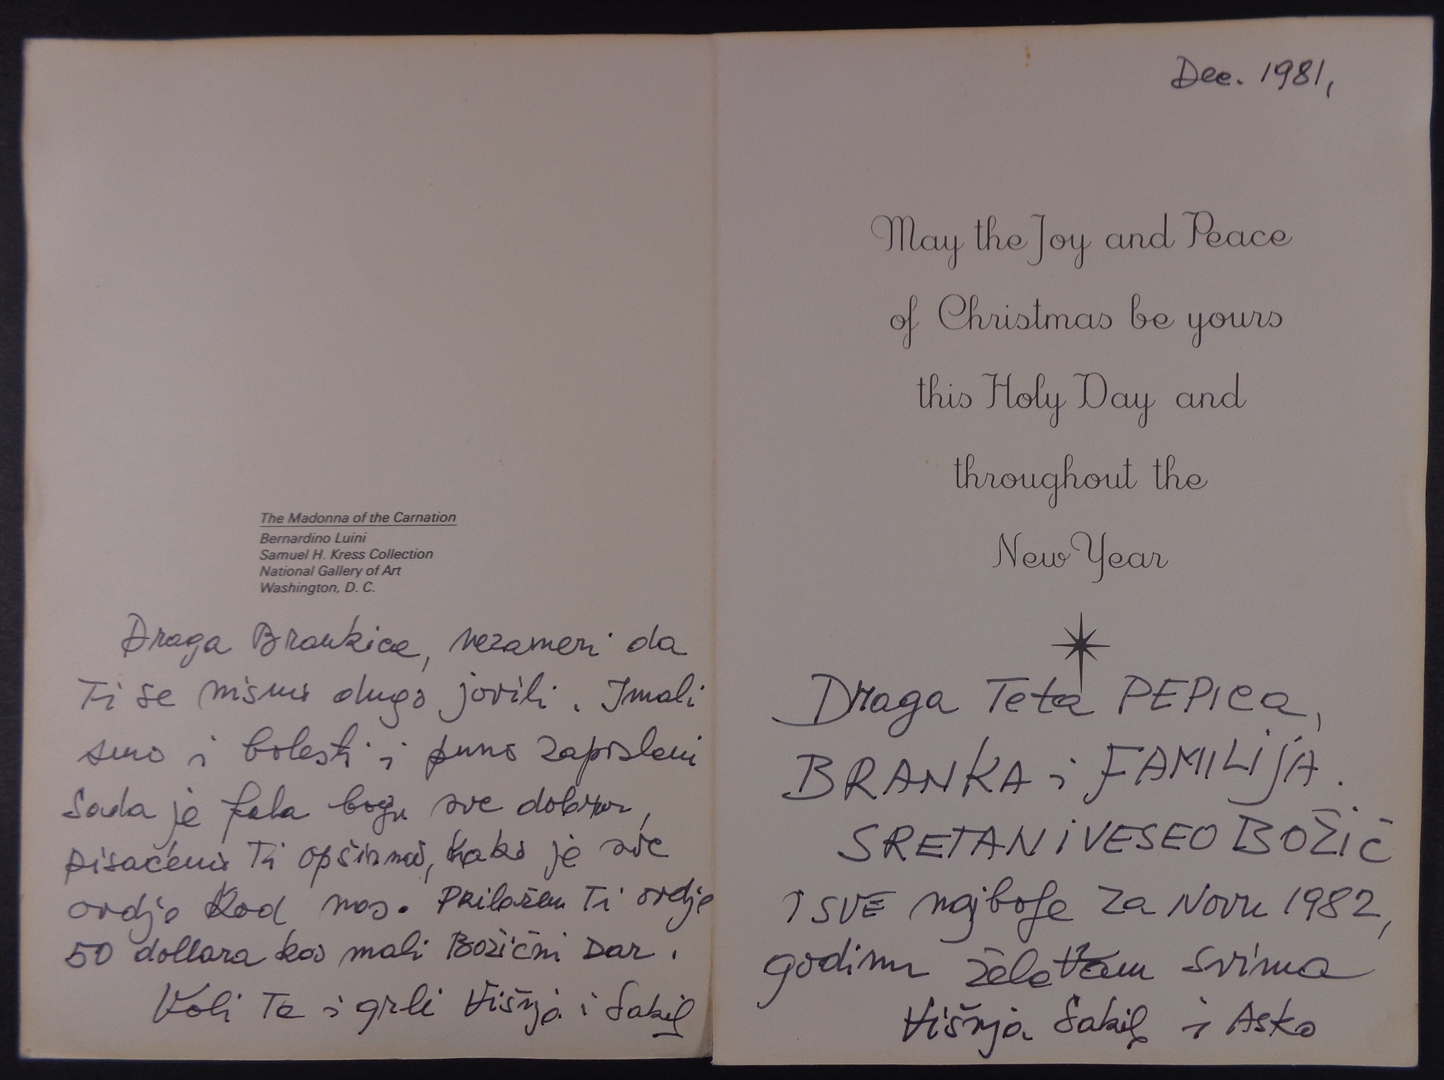 The Madonna of the Carnation
Bernardino Luini
Samuel H. Kress Collection
National Gallery of Art
Washington, D. C.
Draga Brankice, nezameri da
Ti se nismo dugo javili. Imali
smo i bolesti i puno zaposleni
Sada je fala bogu sve dobro,
pisaćemo Ti opširno, kako je sve
ovdje kod nas. Priložem Ti ovdje
50 dollara kao mali Božićni Dar.
Voli Te i grli Višnja i Sakib
Dec. 1981,
May the Joy and Peace
of Christmas be yours
this Holy Day and
throughout the
New Year
Draga Teta PEPICA,
BRANKA i FAMILIJA.
SRETAN i VESEO BOŽIĆ
I SVE najbolje za Novu 1982,
godinu svima
Višnja Sakib i Asko